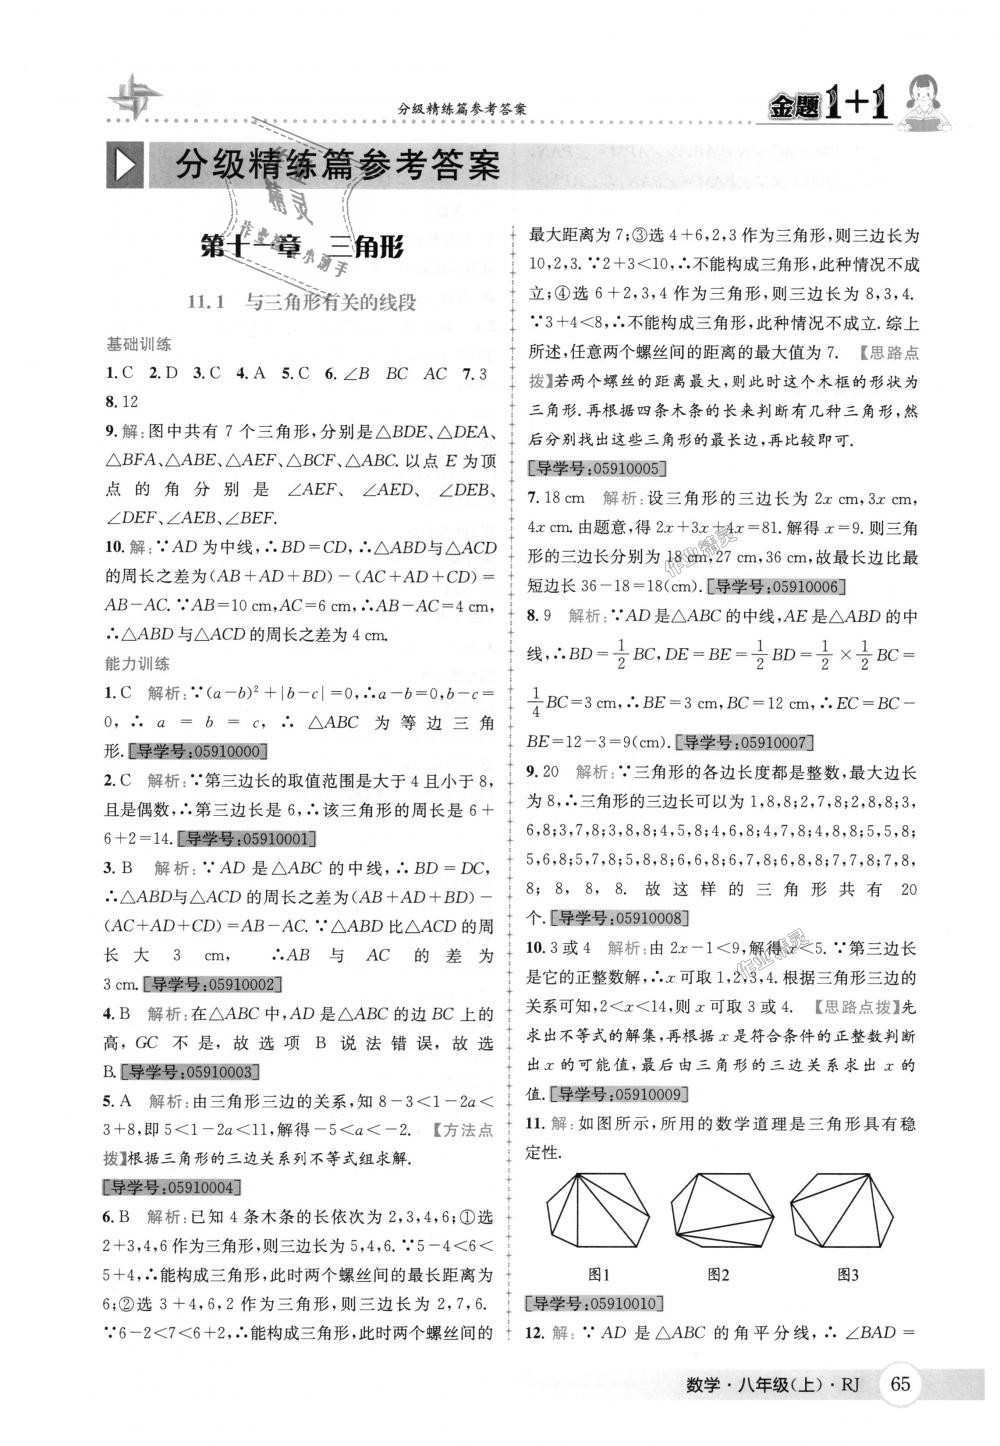 分级精练篇参考答案
金题1+1
分级精练篇参考答案
第十一章　三角形
11.1　与三角形有关的线段
基础训练
1.C　2.D　3.C　4.A　5.C　6.∠B　BC　AC　7.3
8.12
9.解:图中共有7个三角形,分别是△BDE、△DEA、
△BFA、△ABE、△AEF、△BCF、△ABC.以点E为顶
点的角分别是∠AEF、∠AED、∠DEB、
∠DEF、∠AEB、∠BEF.
10.解:∵AD为中线,∴BD=CD,∴△ABD与△ACD
的周长之差为(AB+AD+BD)-(AC+AD+CD)=
AB-AC.∵AB=10 cm,AC=6 cm,∴AB-AC=4 cm,
∴△ABD与△ACD的周长之差为4 cm.
能力训练
1.C　解析:∵(a-b)²+|b-c|=0,∴a-b=0,b-c=
0,∴a=b=c,∴△ABC为等边三角
形.[导学号:05910000]
2.C　解析:∵第三边长的取值范围是大于4且小于8,
且是偶数,∴第三边长是6,∴该三角形的周长是6+
6+2=14.[导学号:05910001]
3.B　解析:∵AD是△ABC的中线,∴BD=DC,
∴△ABD与△ACD的周长之差为(AB+AD+BD)-
(AC+AD+CD)=AB-AC.∵△ABD比△ACD的周
长大3 cm,∴AB与AC的差为
3 cm.[导学号:05910002]
4.B　解析:在△ABC中,AD是△ABC的边BC上的
高,GC不是,故选项B说法错误,故选
B.[导学号:05910003]
5.A　解析:由三角形三边的关系,知8-3<1-2a<
3+8,即5<1-2a<11,解得-5<a<-2.【方法点
拨】根据三角形的三边关系列不等式组求解.
[导学号:05910004]
6.B　解析:已知4条木条的长依次为2,3,4,6;①选
2+3,4,6作为三角形,则三边长为5,4,6.∵5-4<6<
5+4,∴能构成三角形,此时两个螺丝间的最长距离为
6;②选3+4,6,2作为三角形,则三边长为2,7,6.
∵6-2<7<6+2,∴能构成三角形,此时两个螺丝间的
最大距离为7;③选4+6,2,3作为三角形,则三边长为
10,2,3.∵2+3<10,∴不能构成三角形,此种情况不成
立;④选6+2,3,4作为三角形,则三边长为8,3,4.
∵3+4<8,∴不能构成三角形,此种情况不成立.综上
所述,任意两个螺丝间的距离的最大值为7.【思路点
拨】若两个螺丝的距离最大,则此时这个木框的形状为
三角形.再根据四条木条的长来判断有几种三角形,然
后分别找出这些三角形的最长边,再比较即可.
[导学号:05910005]
7.18 cm　解析:设三角形的三边长为2x cm,3x cm,
4x cm.由题意,得2x+3x+4x=81.解得x=9.则三角
形的三边长分别为18 cm,27 cm,36 cm,故最长边比最
短边长36-18=18(cm).[导学号:05910006]
8.9　解析:∵AD是△ABC的中线,AE是△ABD的中
线,∴BD=1/2BC,DE=BE=1/2BD=1/2×1/2BC=
1/4BC=3 cm,∴BE=3 cm,BC=12 cm,∴EC=BC-
BE=12-3=9(cm).[导学号:05910007]
9.20　解析:∵三角形的各边长度都是整数,最大边长
为8,∴三角形的三边长可以为1,8,8;2,7,8;2,8,8;3,
6,8;3,7,8;3,8,8;4,5,8;4,6,8;4,7,8;4,8,8;5,5,8;
5,6,8;5,7,8;5,8,8;6,6,8;6,7,8;6,8,8;7,7,8;7,8,
8;8,8,8.故这样的三角形共有20
个.[导学号:05910008]
10.3或4　解析:由2x-1<9,解得x<5.∵第三边长
是它的正整数解,∴x可取1,2,3,4.根据三角形三边的
关系可知,2<x<14,则x可取3或4.【思路点拨】先
求出不等式的解集,再根据x是符合条件的正整数判断
出x的可能值,最后由三角形的三边关系求出x的
值.[导学号:05910009]
11.解:如图所示,所用的数学道理是三角形具有稳
定性.
图1　图2　图3
[导学号:05910010]
12.解:∵AD是△ABC的角平分线,∴∠BAD=
数学·八年级(上)·RJ　65
作业精灵
作业精灵